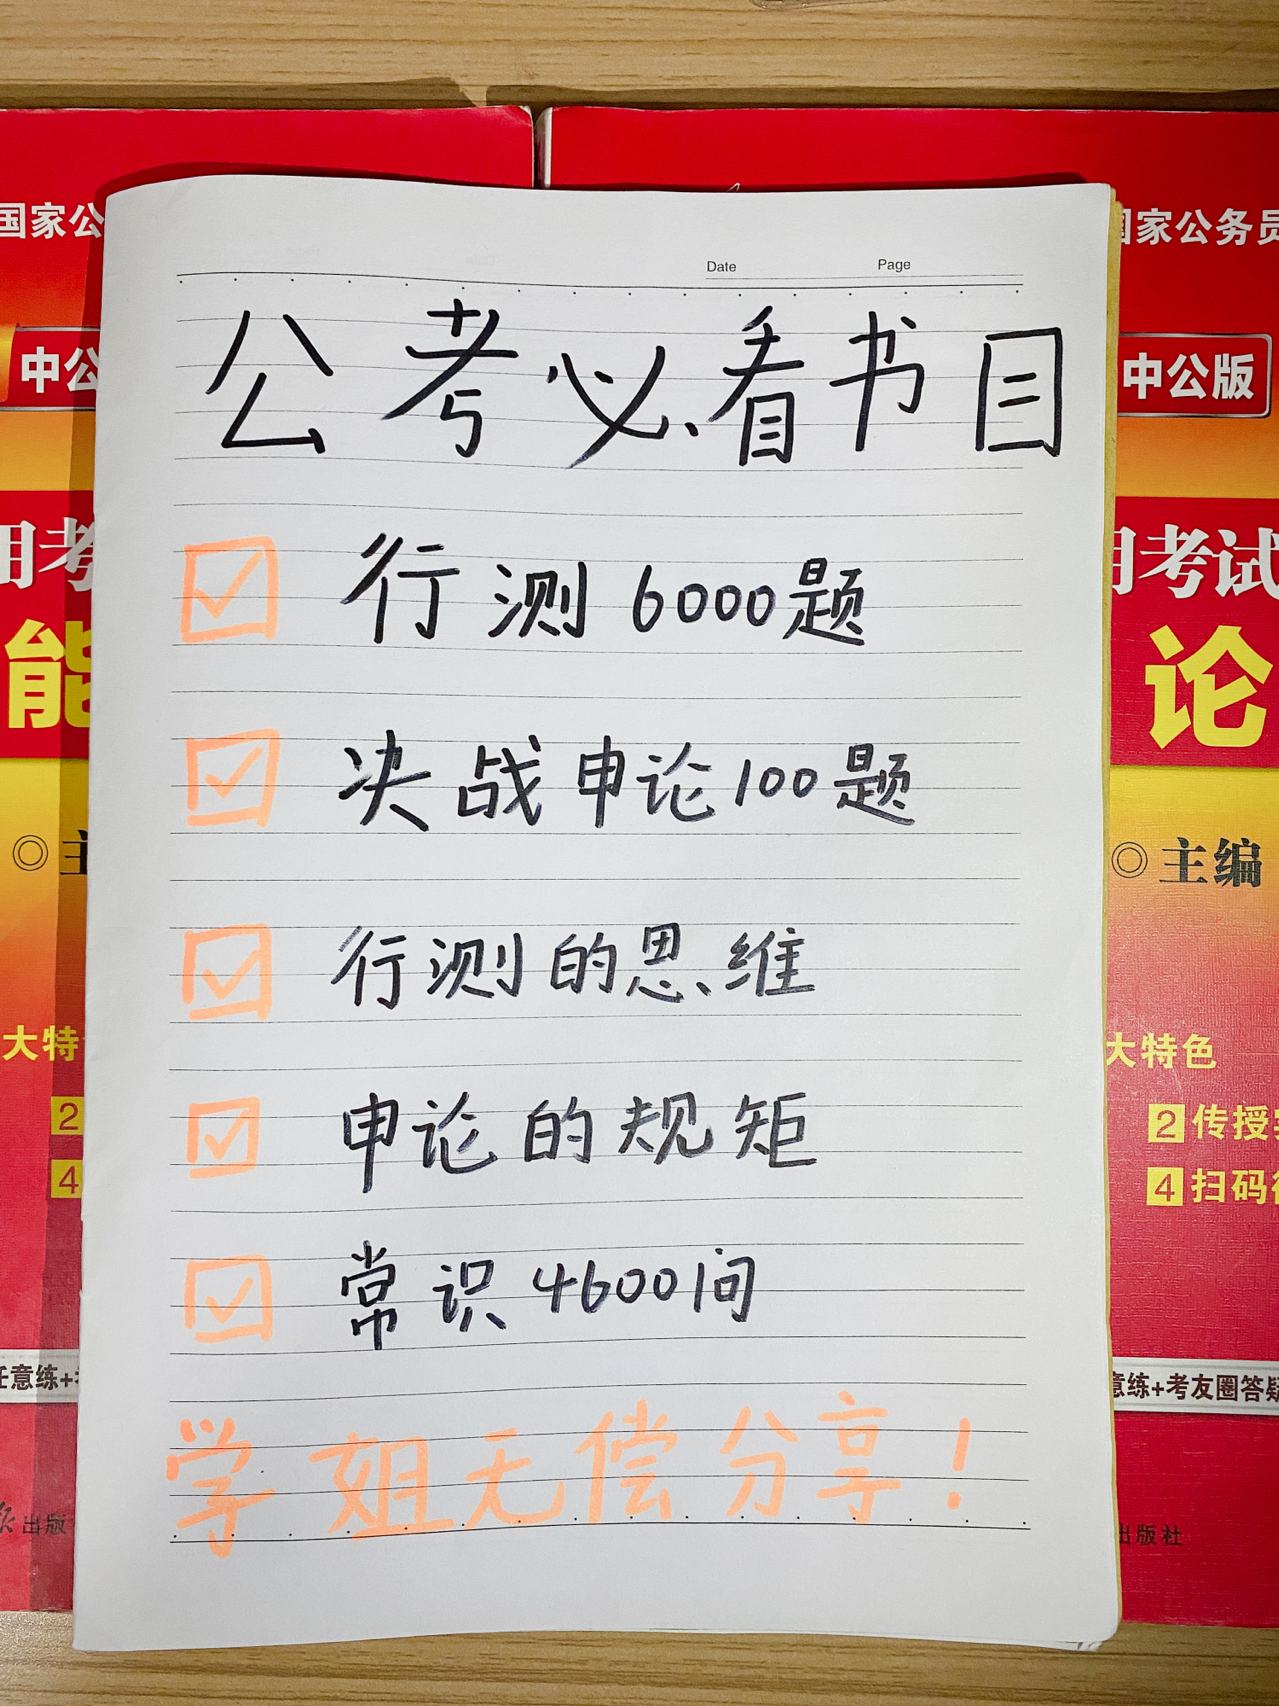 国家公
国家公务员
Date Page
公考必看书目
中公
中公版
行测6000题
用考
用考试
能
论
决战申论100题
主
主编
行测的思维
大特
大特色
申论的规矩
2
2 传授
4
4 扫码
常识4600问
任意练+
意练+考友圈答疑
学姐无偿分享!
出版
出版社